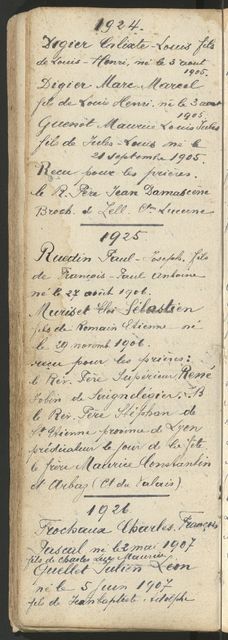 1924.
Digier Calixte-Louis fils
de Louis-Henri, né le 3 aout
1905.
Digier Marc Marcel
fils de Louis Henri, né le 3 aout
1905.
Guenot Maurice Louis Jules
fils de Jules-Louis né le
21 septembre 1905.
Recu pour les prières.
le R. Père Jean Damascène
Broch. d Zell. Ctn Lucerne
1925
Ruedin Paul-Joseph, fils
de François-Paul Antoine
né le 27 août 1906.
Muriset Sébastien
fils de Romain Etienne né
le 29 novemb 1906.
recu pour les prières:
le Rév. Père Supérieur René
Jobin de Saignelégier. J.B
le Rév. Père Stéphan de
St Etienne province de Lyon
prédicateur le jour de la fête
le frère Maurice Constantin
et Arbaz (Ct du Valais)
1926
Frochaux Charles, François
Pascal né le 2 mai 1907
fils de Charles Luc Maurice
Quellet Julien Léon
né le 5 juin 1907
fils de Jean Baptiste Adolphe